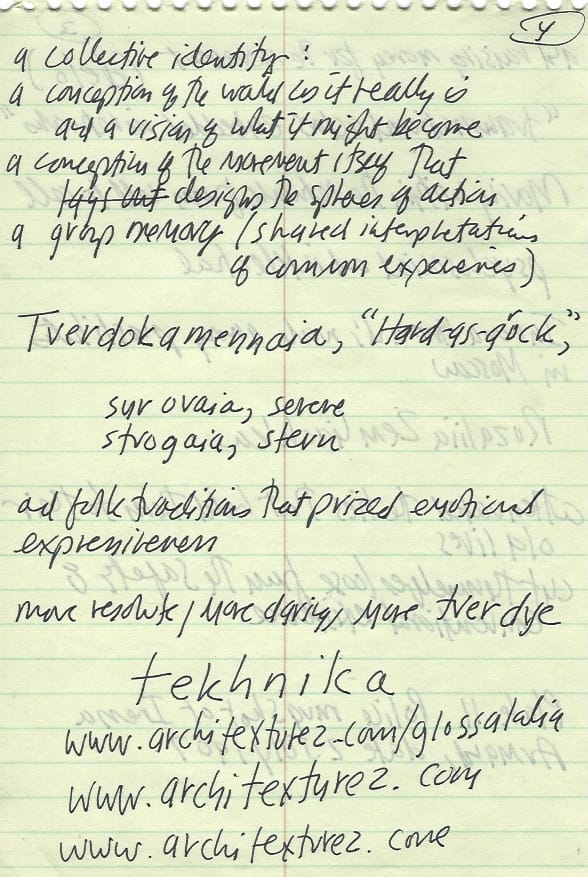 4
a collective identity:
a conception of the world as it really is
and a vision of what it might become
a conception of the movement itself that
lays out designs the spheres of action
a group memory (shared interpretations
of common experiences)
Tverdokamennaia, "Hard-as-rock",
surovaia, severe
strogaia, stern
and folk traditions that prized emotional
expressiveness
more resolute, more daring, more tverdye
tekhnika
www.architexturez.com/glossalalia
www.architexturez.com
www.architexturez.com